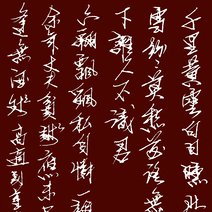 千里黄雲白日曛
雪紛紛莫愁前路無
下誰人不識君
六翮飄飖私自憐一離
餘年丈夫貧賤應未
逢無酒錢 高適別董